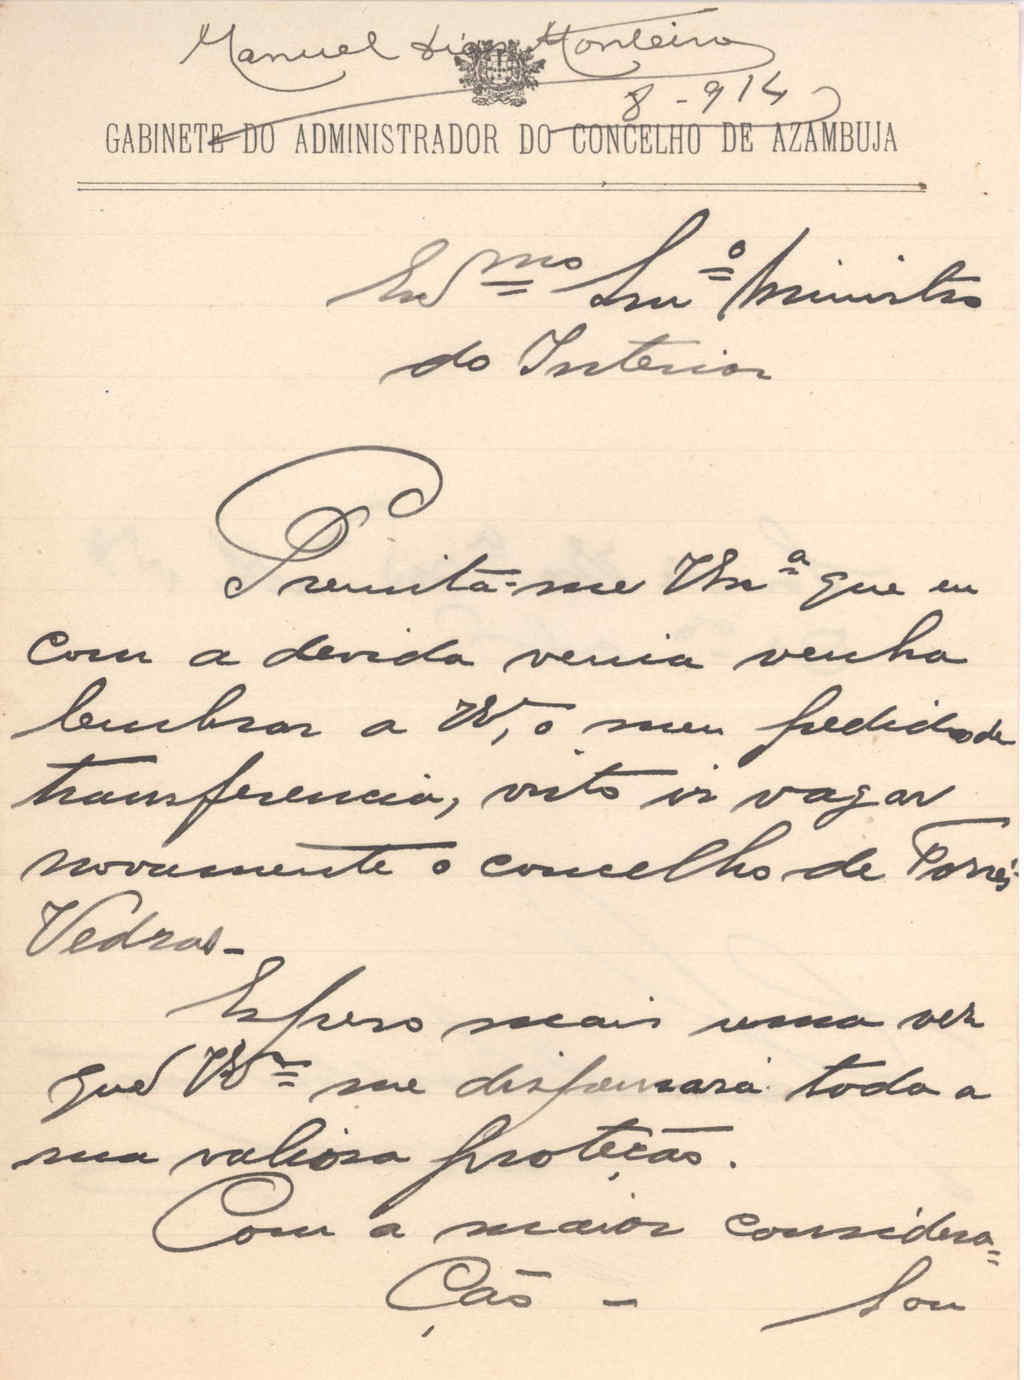 Manuel Dias Monteiro
8-914
GABINETE DO ADMINISTRADOR DO CONCELHO DE AZAMBUJA
Exmo Snrº Ministro
do Interior
Premita-me VExª que eu
com a devida venia venha
lembrar a V, o meu pedido de
transferencia, visto ir vagar
novamente o concelho de Torres
Vedras-
Espero mais uma vez
que me dispensará toda a
sua valiosa proteção.
Com a maior considera=
ção - Sou